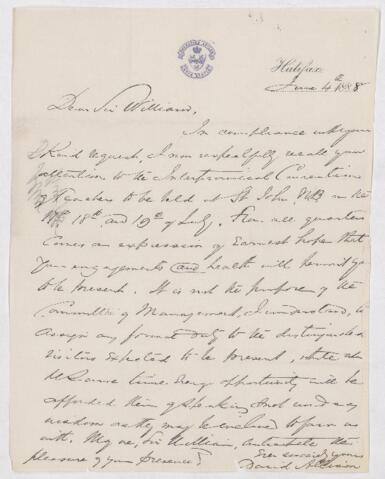 Halifax
June 4th 1888
Dear Sir William,
In compliance with your
kind request, I now respectfully recall your
attention to the Interprovincial Convention
of Teachers to be held at St John, N.B. on the
18th and 19th of July. From all quarters
comes an expression of earnest hope that
your engagements and health will permit you
to be present. It is not the purpose of the
Committee of Management, I understand, to
assign any formal duty to the distinguished
visitors expected to be present, while at
the same time every opportunity will be
afforded them of speaking such
wisdom as they may be inclined to favor us
with. May we, Sir William, anticipate the
pleasure of your presence?
Ever sincerely yours
David Allison